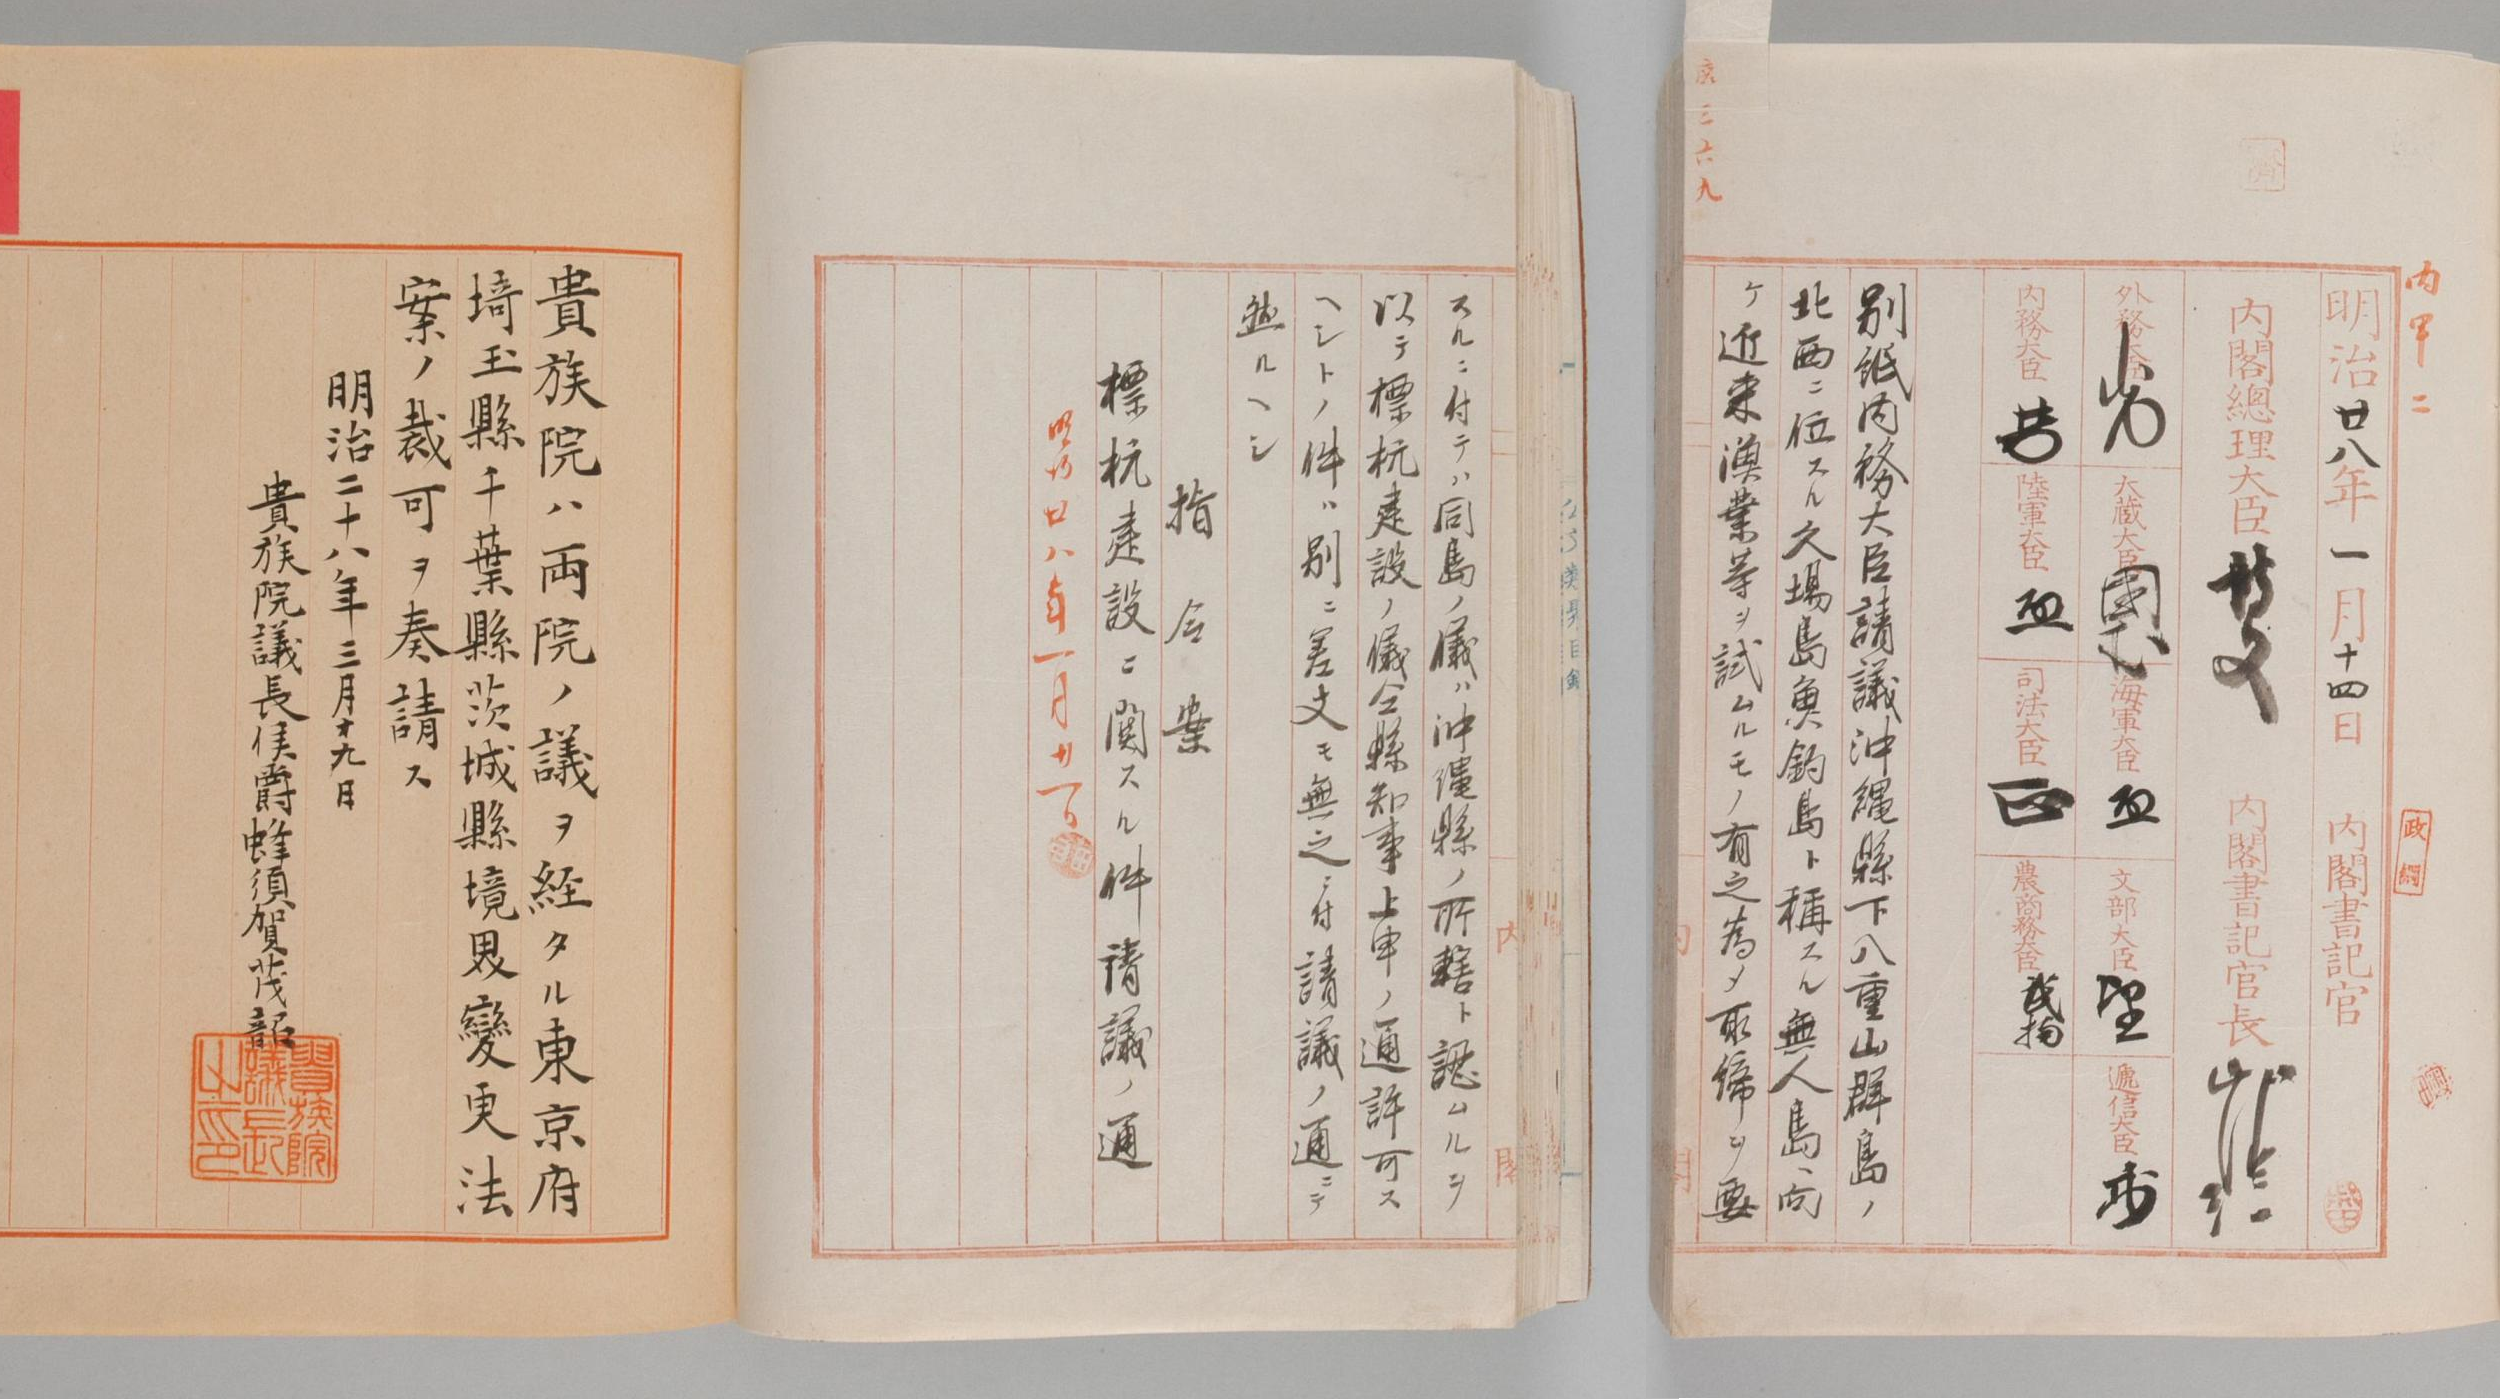 内甲二
明治廿八年一月十四日 内閣書記官
内閣總理大臣 内閣書記官長
外務大臣 大蔵大臣 海軍大臣 文部大臣 遞信大臣
内務大臣 陸軍大臣 司法大臣 農商務大臣
別紙内務大臣請議沖縄縣下八重山群島ノ
北西ニ位スル久場島魚釣島ト稱スル無人島ヘ向
ケ近来漁業等ヲ試ムルモノ有之為メ取締ヲ要
スルニ付テハ同島ノ儀ハ沖縄縣ノ所轄ト認ムルヲ
以テ標杭建設ノ儀仝縣知事上申ノ通許可ス
ヘシトノ件ハ別ニ差支モ無之ニ付請議ノ通ニテ
然ルヘシ
指令案
標杭建設ニ関スル件請議ノ通
明治廿八年一月廿一日
貴族院ハ両院ノ議ヲ経タル東京府
埼玉縣千葉縣茨城縣境界變更法
案ノ裁可ヲ奏請ス
明治二十八年三月十九日
貴族院議長侯爵蜂須賀茂韶
貴族院議長之印